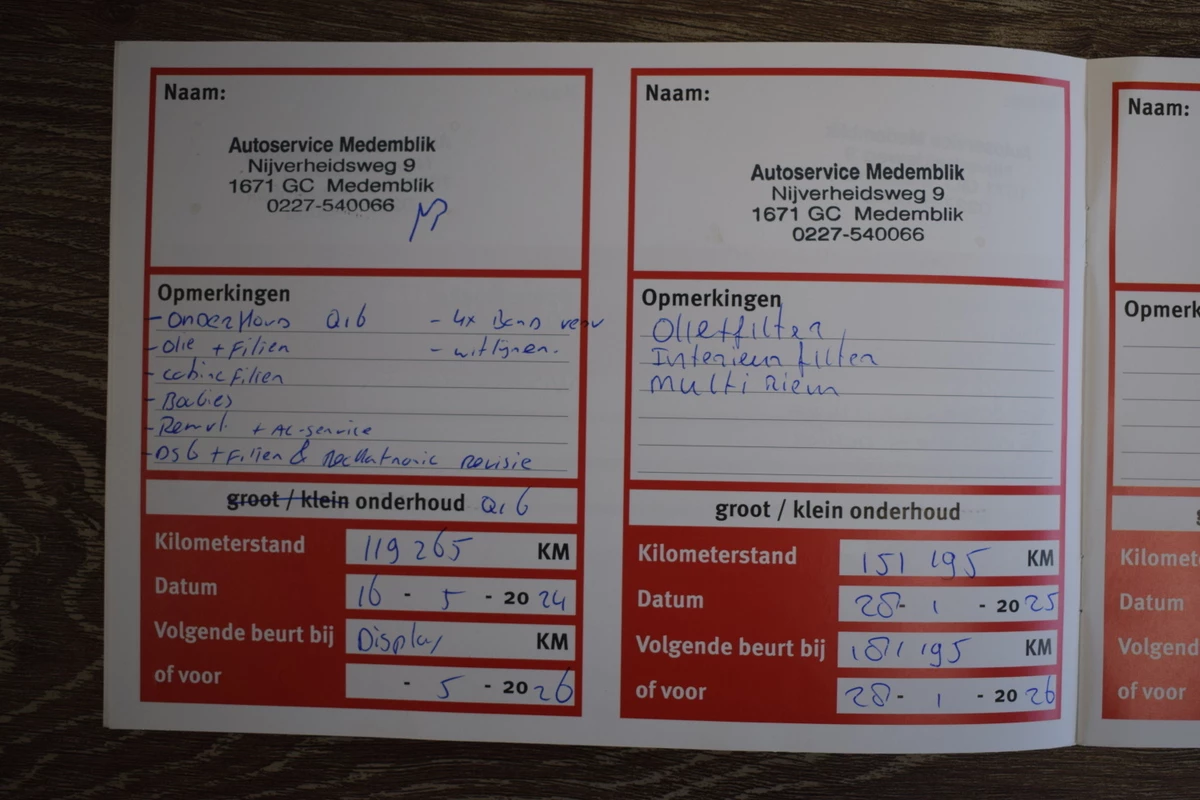 Naam:
Autoservice Medemblik
Nijverheidsweg 9
1671 GC Medemblik
0227-540066
Opmerkingen
- Onderhoud Q16 - 4x Band verv
- Olie + Filter - witlijnen.
- cabine filter
- Bobies
- Remvl. + AC-service
- DSG + Filter & Mechatronic revisie
groot / klein onderhoud Q16
Kilometerstand 119 265 KM
Datum 16 - 5 - 20 24
Volgende beurt bij Display KM
of voor - 5 - 20 26
Naam:
Autoservice Medemblik
Nijverheidsweg 9
1671 GC Medemblik
0227-540066
Opmerkingen
Olietfilter
Interieur filter
multi riem
groot / klein onderhoud
Kilometerstand 151 195 KM
Datum 28 - 1 - 20 25
Volgende beurt bij 181 195 KM
of voor 28 - 1 - 20 26
Naam:
Opmerk
Kilomet
Datum
Volgend
of voor